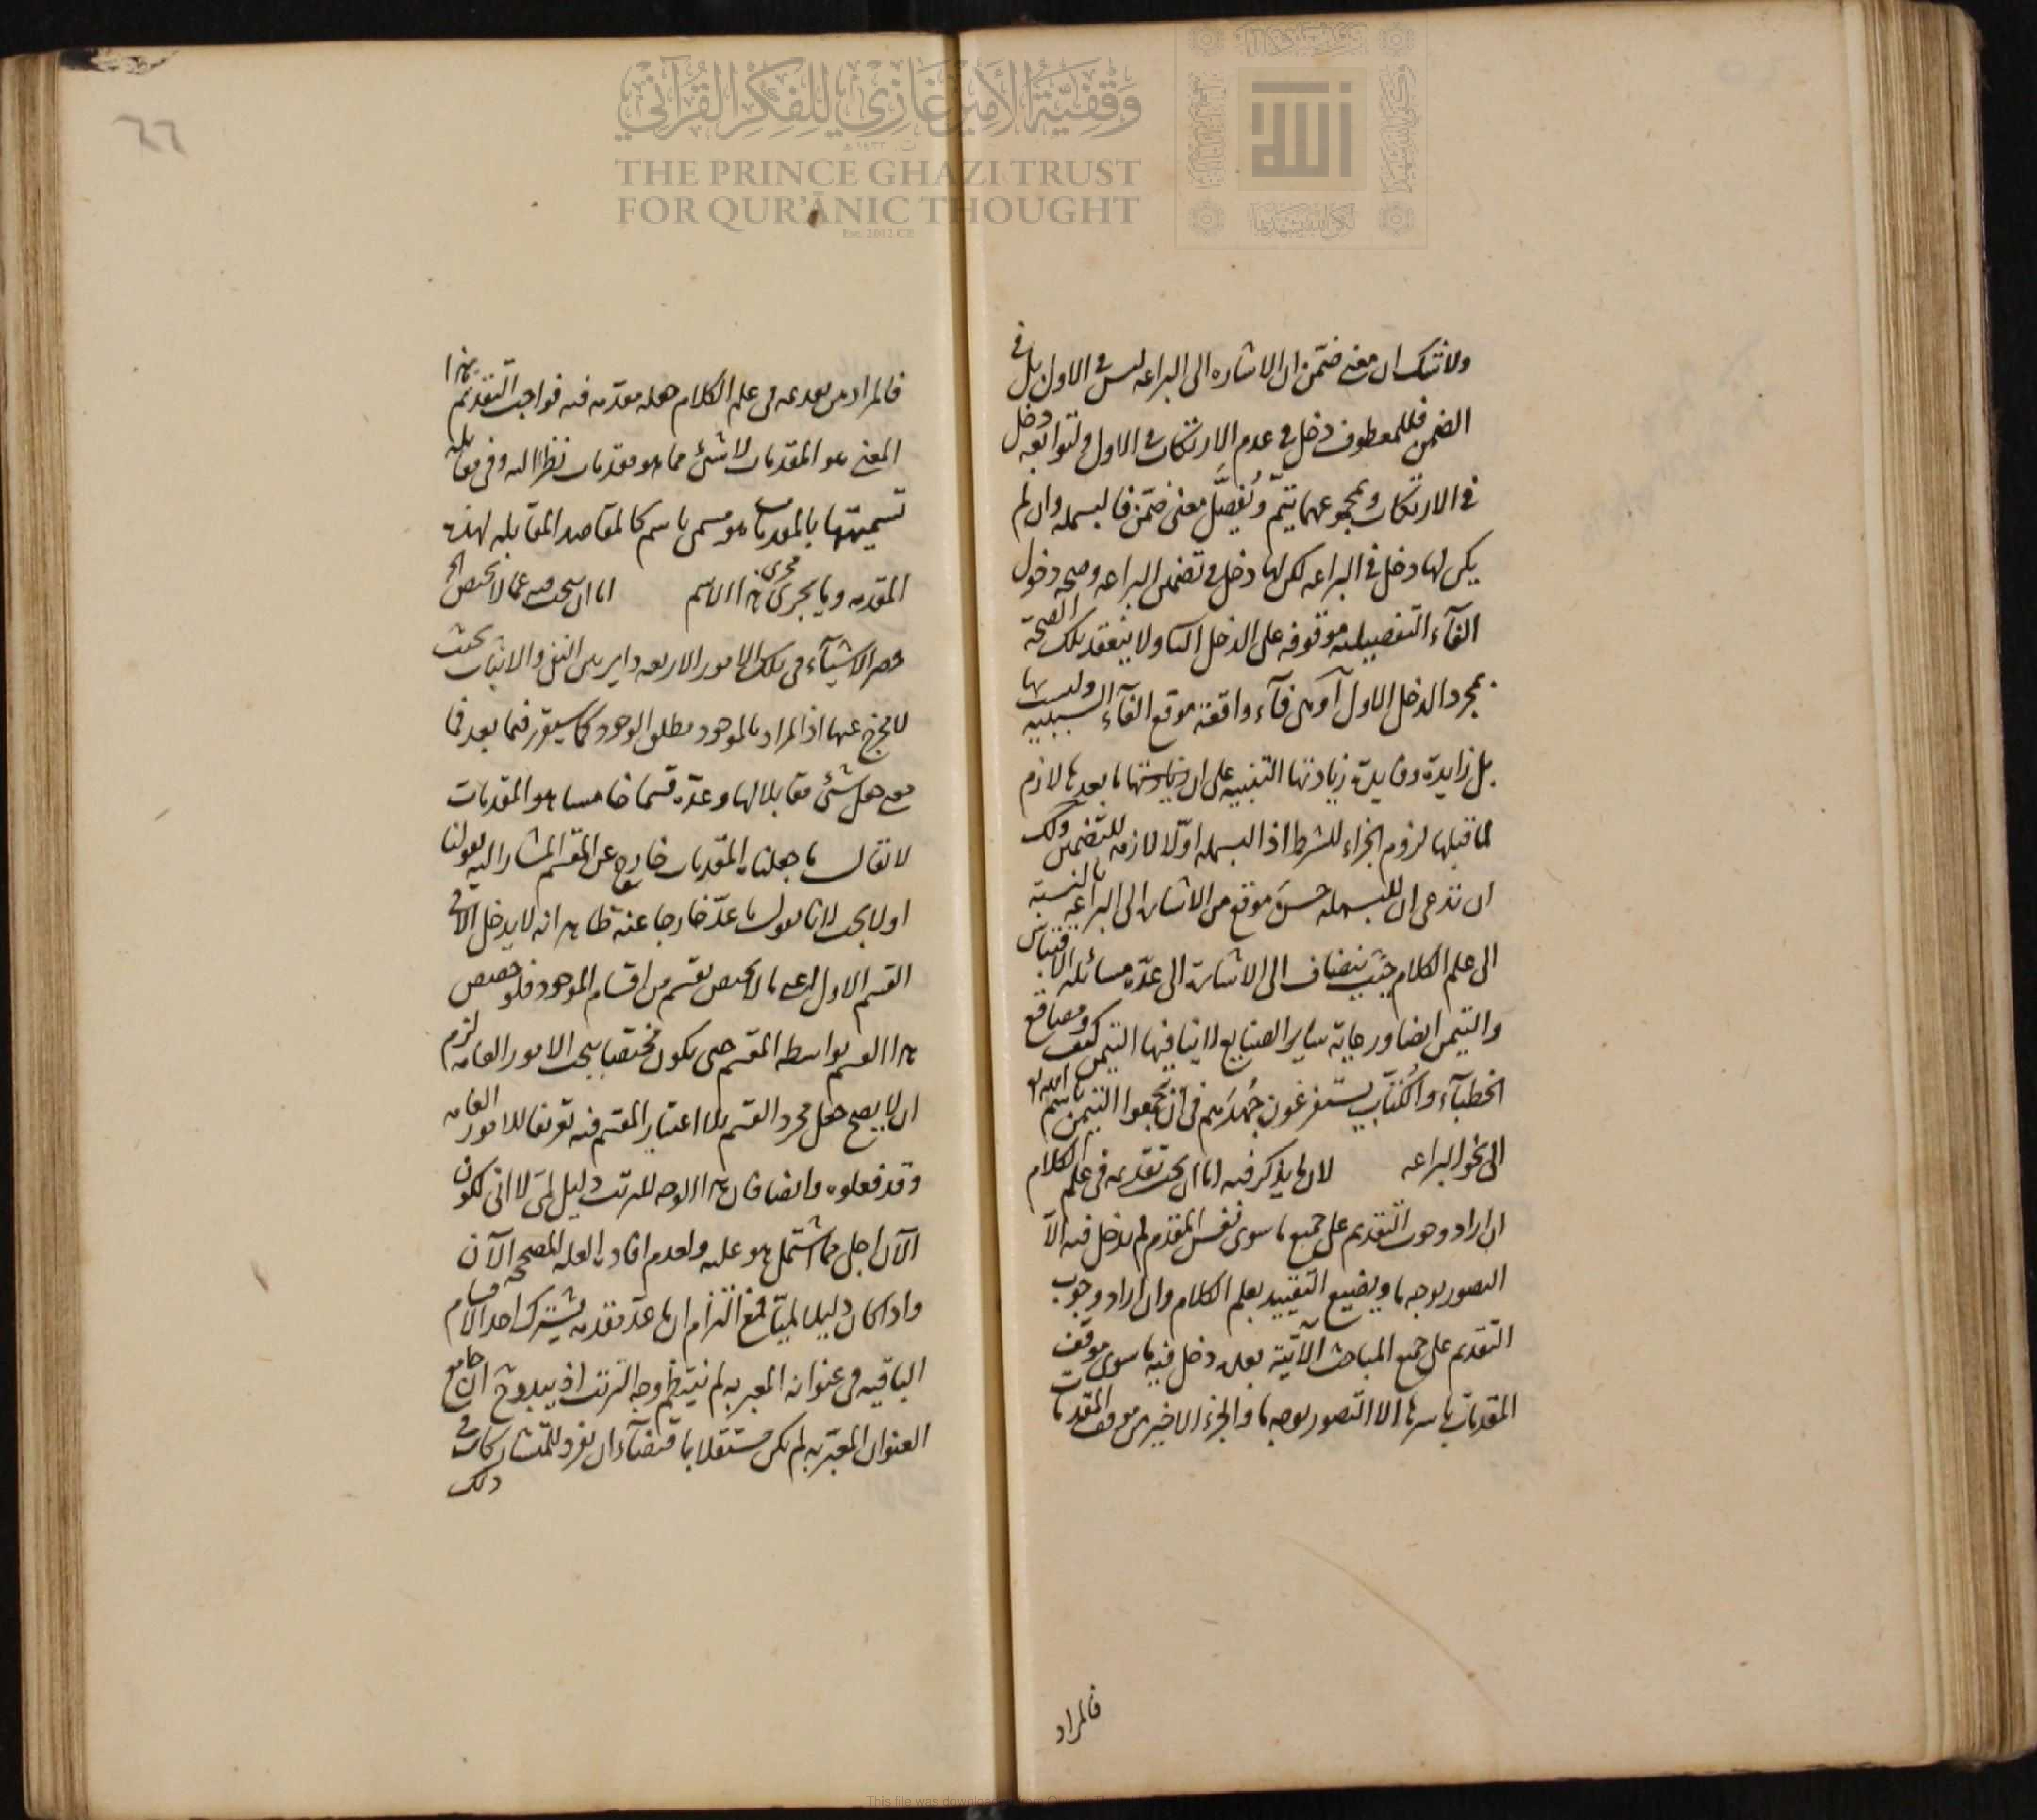 وقفية الأمير غازي للفكر القرآني
THE PRINCE GHAZI TRUST
FOR QUR'ĀNIC THOUGHT
Est. 2012 CE
ولا شك ان معنى ضمّن ان الاشاره الى البراعه ليس فى الاول بل فى
الضمن فللمعطوف دخل فى عدم الارتكاب فى الاول ولتوابعه دخل
فى الارتكاب وبمجموعهما يتمّ ويُفصَّل معنى ضمّن فالبسمله وان لم
يكن لها دخل فى البراعه لكن لها دخل فى تضمن البراعه وصحه دخول
الفآء التفصيليه موقوفه على الدخل ولا ينعقد تلك الصحة
بمجرد الدخل الاول او هى فآء واقعة موقع الفآء السببيه وليست بها
بل زايدة وفايدة زيادتها التنبيه على ان ما بعدها لازم
لما قبلها لزوم الجزاء للشرط اذ البسمله اوّلا لازمه للتضمن ولك
ان تدعى ان للبسمله حسن موقع من الاشاره الى البراعة بالنسبة
الى علم الكلام حيث ينضاف الى الاشارة الى عدّه مسائله الاقتباس
والتيمن ايضا ورعاية ساير الصنايع لا ينافيها التيمن كيف ومصاقع
الخطبآء والكُتّاب يستفرغون جُهدَهم فى ان يجمعوا التيمن باسم الله
الى نحو البراعه لان ما يذكر فيه اما ان يجب تقديمه فى علم الكلام
ان اراد وجوب التقديم على جميع ما سوى نفس المقدم لم يدخل فيه الّا
التصور بوجه ما ويضيع التقييد بعلم الكلام وان اراد وجوب
التقديم على جميع المباحث الآتية بعده دخل فيه ما سوى موقف
المقدمات باسرها الا التصور بوجه ما والجزء الاخير من موقف المقدمات
فالمراد
٦٦
فالمراد من تقديمه فى علم الكلام جعله مقدّمه فيه فواجب التقديم بهذا
المعنى هو المقدمات لا شئ مما هو مقدمات نظرا اليه وفى مقابله
تسميتها بالمقدمات هو مسمى باسم كالمقاصد المقابله لهذه
المقدمه وما يجرى مجرى هذا الاسم اما ان يبحث فيه عما لا يختص الخ
حصر الاشيآء فى تلك الامور الاربعه داير بين النفى والاثبات بحيث
لا يخرج عنها اذ المراد بالموجود مطلق الوجود كما سيقرر فيما بعد فما
معنى جعل شئ مقابلا لها وعدّه قسما خامسا هو المقدمات
لا يقال ما جعلناه المقدمات خارج عن المقسم المشار اليه بقولنا
اولا يجب لانا نقول ما عدّ خارجا عنه ظاهر انه لا يدخل الا فى
القسم الاول اعنى ما لا يختص بقسم من اقسام الموجود فلو خصص
هذا القسم بواسطه المقسم حتى يكون مختصا ببحث الامور العامه لزم
ان لا يصح جعل مجرد القسم بلا اعتبار المقسم فيه تعريفا للامور العامه
وقد فعلوه وايضا فان هذا الوجه للترتب دليل لمّى لا انى لكون
الآن اجل مما اشتمل هو عليه ولعدم افاده العله المصححه الآن
واذا كان دليلا لميّا فمع التزام ان ما عدّ مقدمه يشترك احد الاقسام
الباقيه فى عنوانه المعبر به لم ينتظم وجه الترتب اذ يبدو ح ان جامع
العنوان المعبّر به لم يكن مستقلا باقتضآء ان يفرد للمتشاركات فى
ذلك